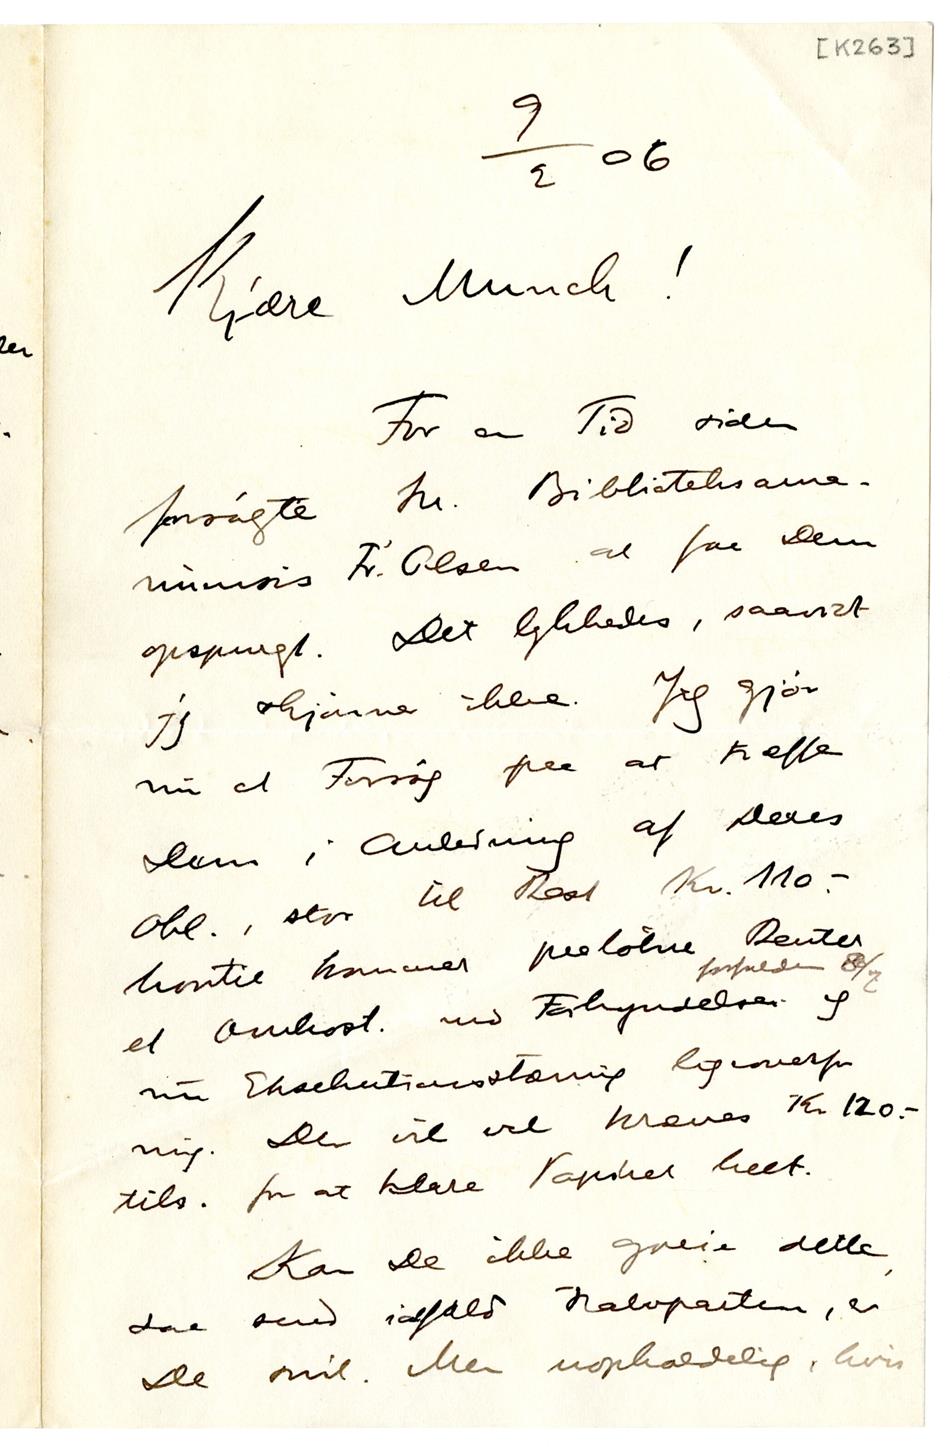 [K263]
9/2 06
Kjære Munch!
For en Tid siden
forsøgte hr. Biblioteksama-
nuensis Fr. Olsen at faa Dem
opspurgt. Det lykkedes, saavidt
jeg skjønner ikke. Jeg gjør
nu et Forsøg paa at træffe
Dem i Anledning af Deres
Obl., stor til Rest Kr. 110.-
hvortil kommer paaløbne Renter
forfalden 8/
et Omkost. ved Forkyndelse og
nu Eksekutionsstævning ligeoverfor
mig. Der vil vel kræves Kr 120.-
tils. for at klare Papiret helt.
Kan De ikke greie dette,
saa send ialfald Halvparten, er
De snil. Men uopholdelig, hvis